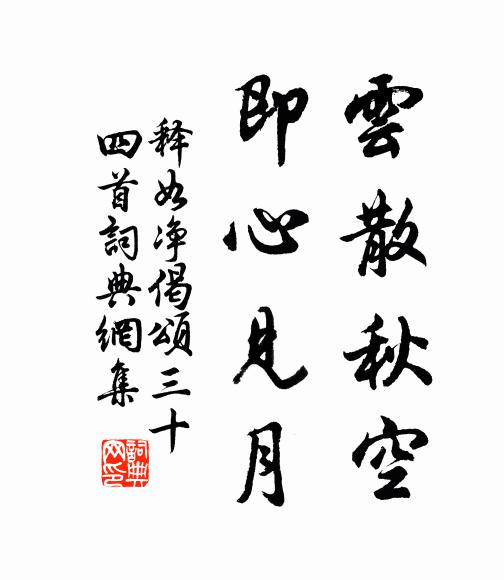 雲散秋空
即心見月
释如净偈頌三十
四首詞典網集
詞典
网印